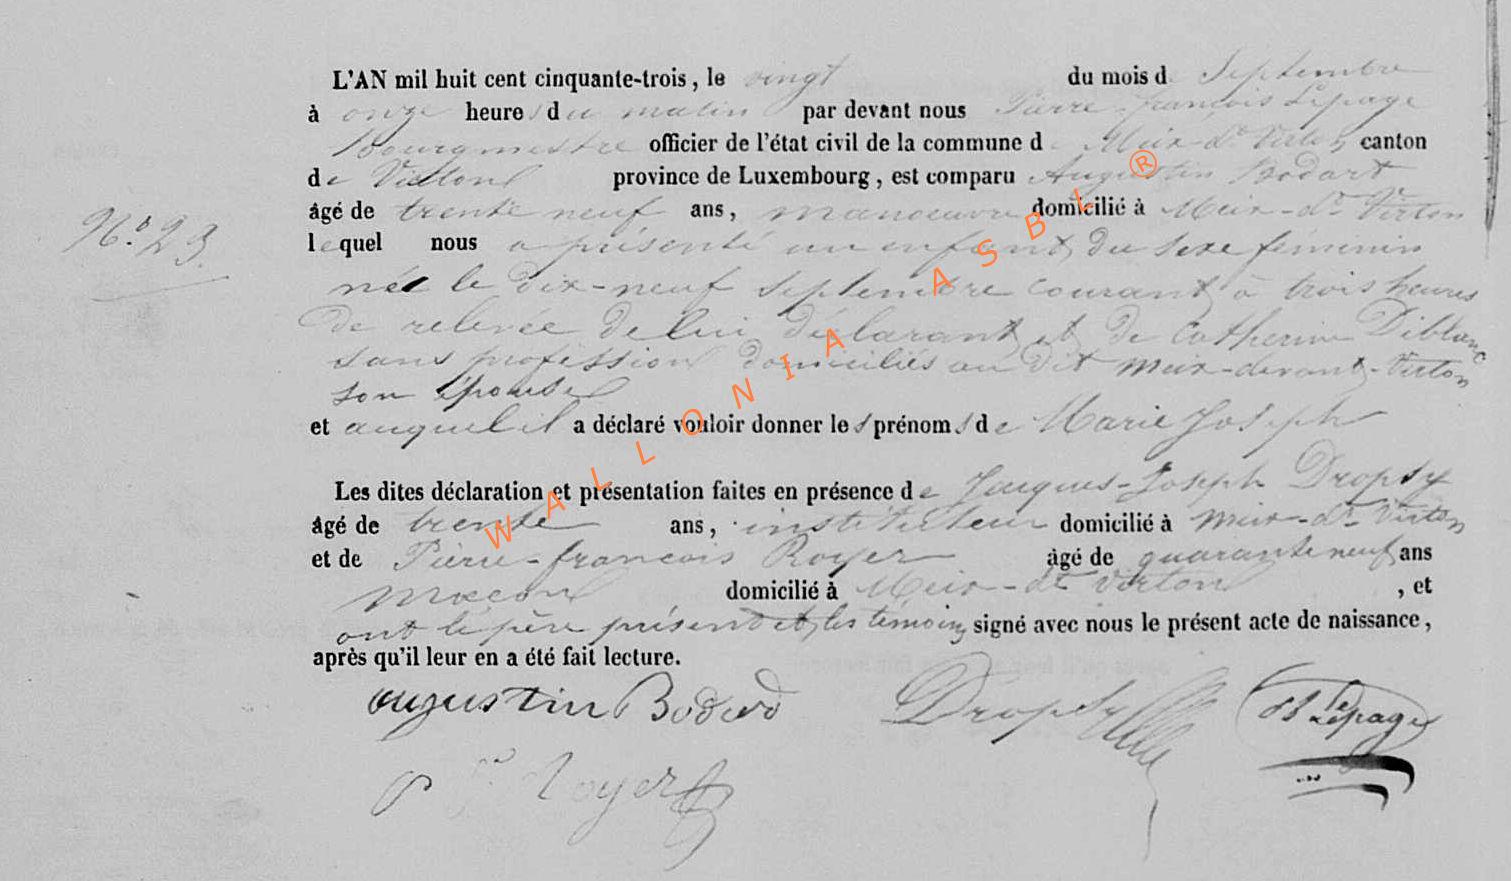 L'AN mil huit cent cinquante-trois, le vingt du mois de Septembre
à onze heures du matin par devant nous Pierre-françois Lepage
Bourgmestre officier de l'état civil de la commune de Meix-dt Virton, canton
de Virton province de Luxembourg, est comparu Augustin Bodart
âgé de trente neuf ans, manoeuvre domicilié à Meix-dt Virton
No. 23. lequel nous a présenté un enfant, du sexe féminin
née le dix-neuf septembre courant, à trois heures
de relevée de lui déclarant, et de Catherine Diblanc
sans profession domiciliés au dit Meix-devant-Virton
son épouse
et auquel il a déclaré vouloir donner les prénoms de Marie Joseph
Les dites déclaration et présentation faites en présence de Jacques-Joseph Dropsy
âgé de trente ans, instituteur domicilié à Meix-dt Virton
et de Pierre-francois Royer âgé de quarante neuf ans
macon domicilié à Meix-dt Virton, et
ont le père présent et, les témoins, signé avec nous le présent acte de naissance,
après qu'il leur en a été fait lecture.
augustin Bodard Dropsy Lepage
P Royer
WALLONIA ASBL ®